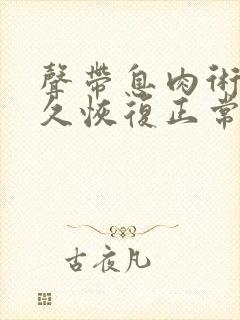 聲帶息肉術
久恢復正常
古夜凡